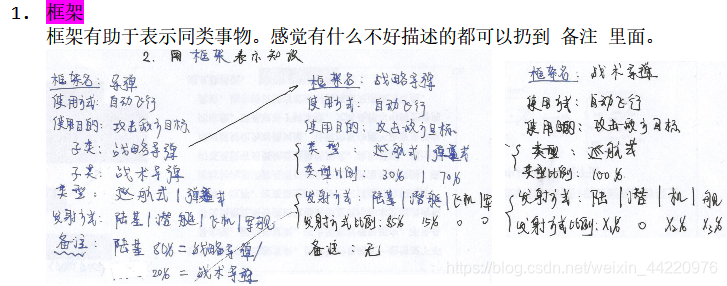 1. 框架
框架有助于表示同类事物。感觉有什么不好描述的都可以扔到 备注 里面。
2. 用框架表示知识
框架名：导弹
使用方式：自动飞行
使用目的：攻击敌方目标
子类：战略导弹
子类：战术导弹
类型：巡航式|弹道式
发射方式：陆基|潜艇|飞机|军舰
备注：陆基 80% = 战略导弹/
… … 20% = 战术导弹
框架名：战略导弹
使用方式：自动飞行
使用目的：攻击敌方目标
类型：巡航式|弹道式
类型比例：30% | 70%
发射方式：陆基|潜艇|飞机|军
发射方式比例：85% 15% 0 0
备注：无
框架名：战术导弹
使用方式：自动飞行
使用目的：攻击敌方目标
类型：巡航式
类型比例：100%
发射方式：陆|潜|机|舰
发射方式比例：X₁% 0 X₂% X₃%
https://blog.csdn.net/weixin_44220976